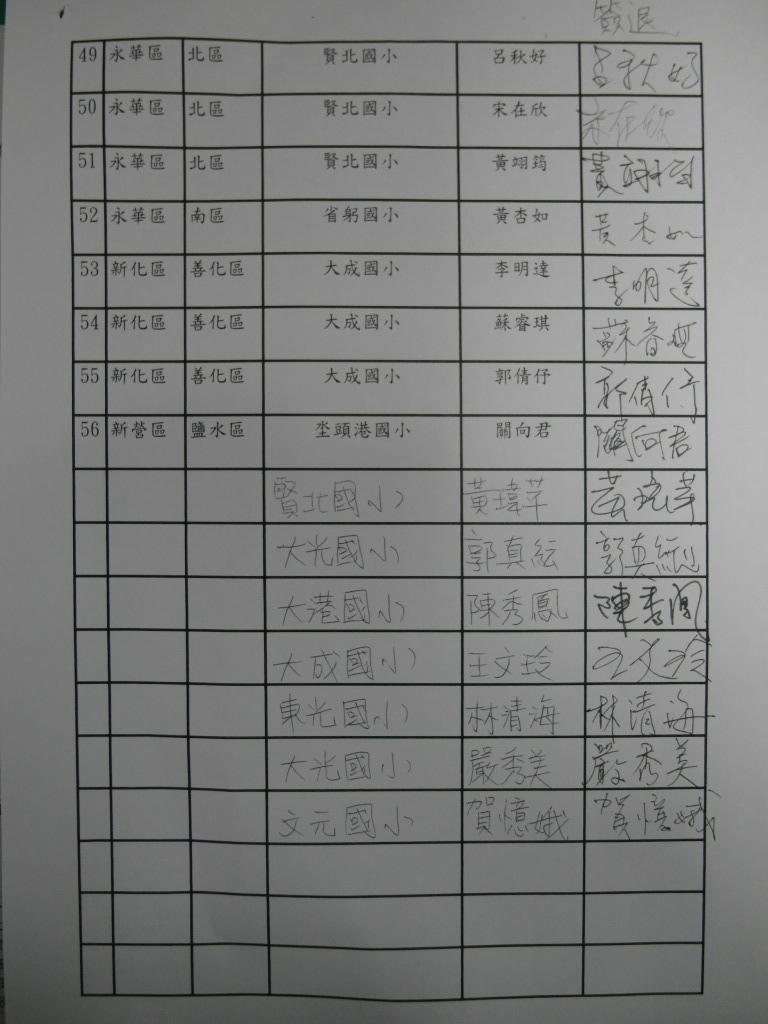 簽退
49 永華區 北區 賢北國小 呂秋好 呂秋好
50 永華區 北區 賢北國小 宋在欣 宋在欣
51 永華區 北區 賢北國小 黃翊筠 黃翊筠
52 永華區 南區 省躬國小 黃杏如 黃杏如
53 新化區 善化區 大成國小 李明達 李明達
54 新化區 善化區 大成國小 蘇睿琪 蘇睿琪
55 新化區 善化區 大成國小 郭倩伃 郭倩伃
56 新營區 鹽水區 坔頭港國小 關向君 關向君
賢北國小 黃瑋苹 黃瑋苹
大光國小 郭真紜 郭真紜
大港國小 陳秀鳳 陳秀鳳
大成國小 王文玲 王文玲
東光國小 林清海 林清海
大光國小 嚴秀美 嚴秀美
文元國小 賀憶娥 賀憶娥